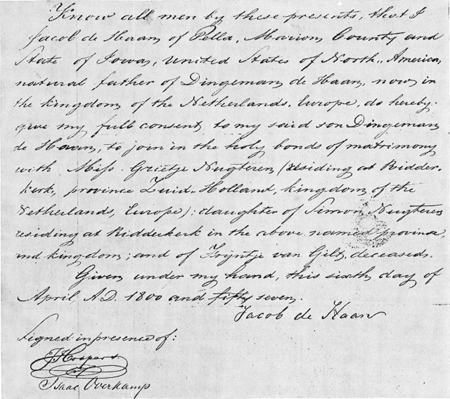 Know all men by these presents, that I
Jacob de Haan, of Pella, Marion, County and
State of Iowa, United States of North-America,
natural father of Dingeman, de Haan, now in
the kingdom of the Netherlands. Europe, do hereby
give my full consent, to my said son Dingeman
de Haan, to join in the holy bonds of matrimony
with Miss. Grietje Nugteren, (residing at Ridder-
kerk, province Zuid-Holland, kingdom of the
Netherlands, Europe); daughter of Simon Nugteren
residing at Ridderkerk in the above named province
and kingdom; and of Trijntje van Gilt, deceased.
Given under my hand, this sixth day of
April A.D. 1800 and fifty seven.
Jacob de Haan
Signed in presence of:
J Hospers
Isaac Overkamp